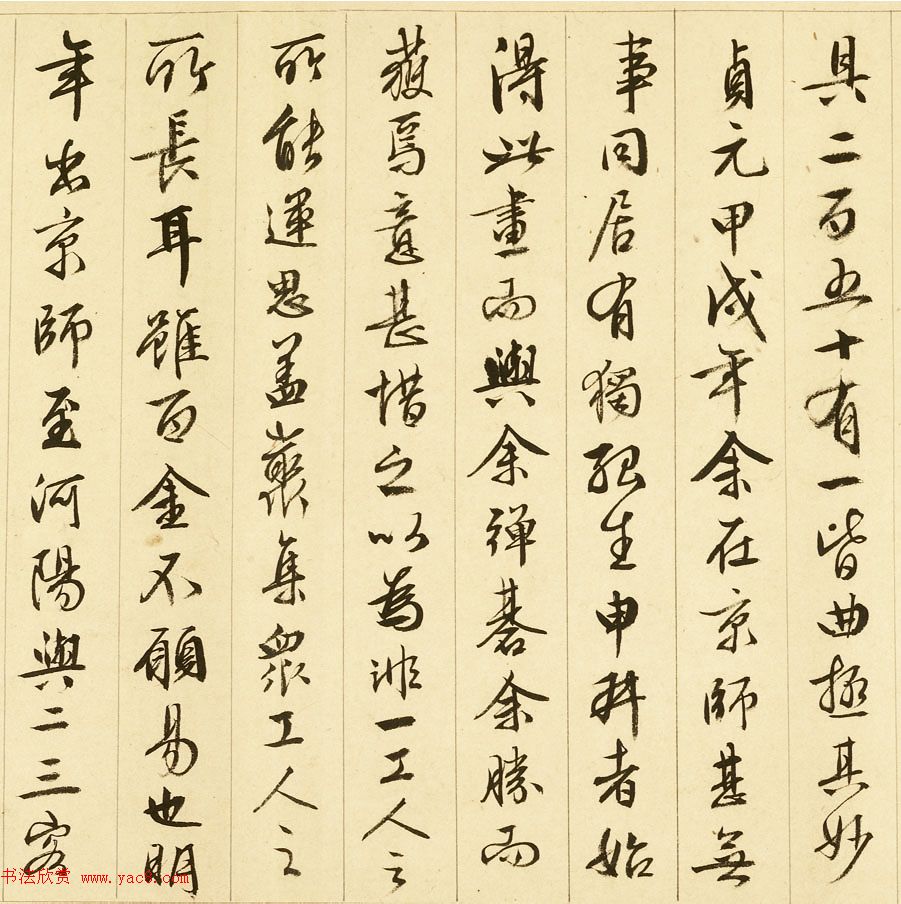 具二百五十有一皆曲極其妙
貞元甲戌年余在京師甚無
事同居有獨孤生申叔者始
得此畫而與余彈碁余勝而
獲焉意甚惜之以為非一工人之
所能運思蓋藂集眾工人之
所長耳雖百金不願易也明
年出京師至河陽與二三客
书法欣赏 www.yac8.com